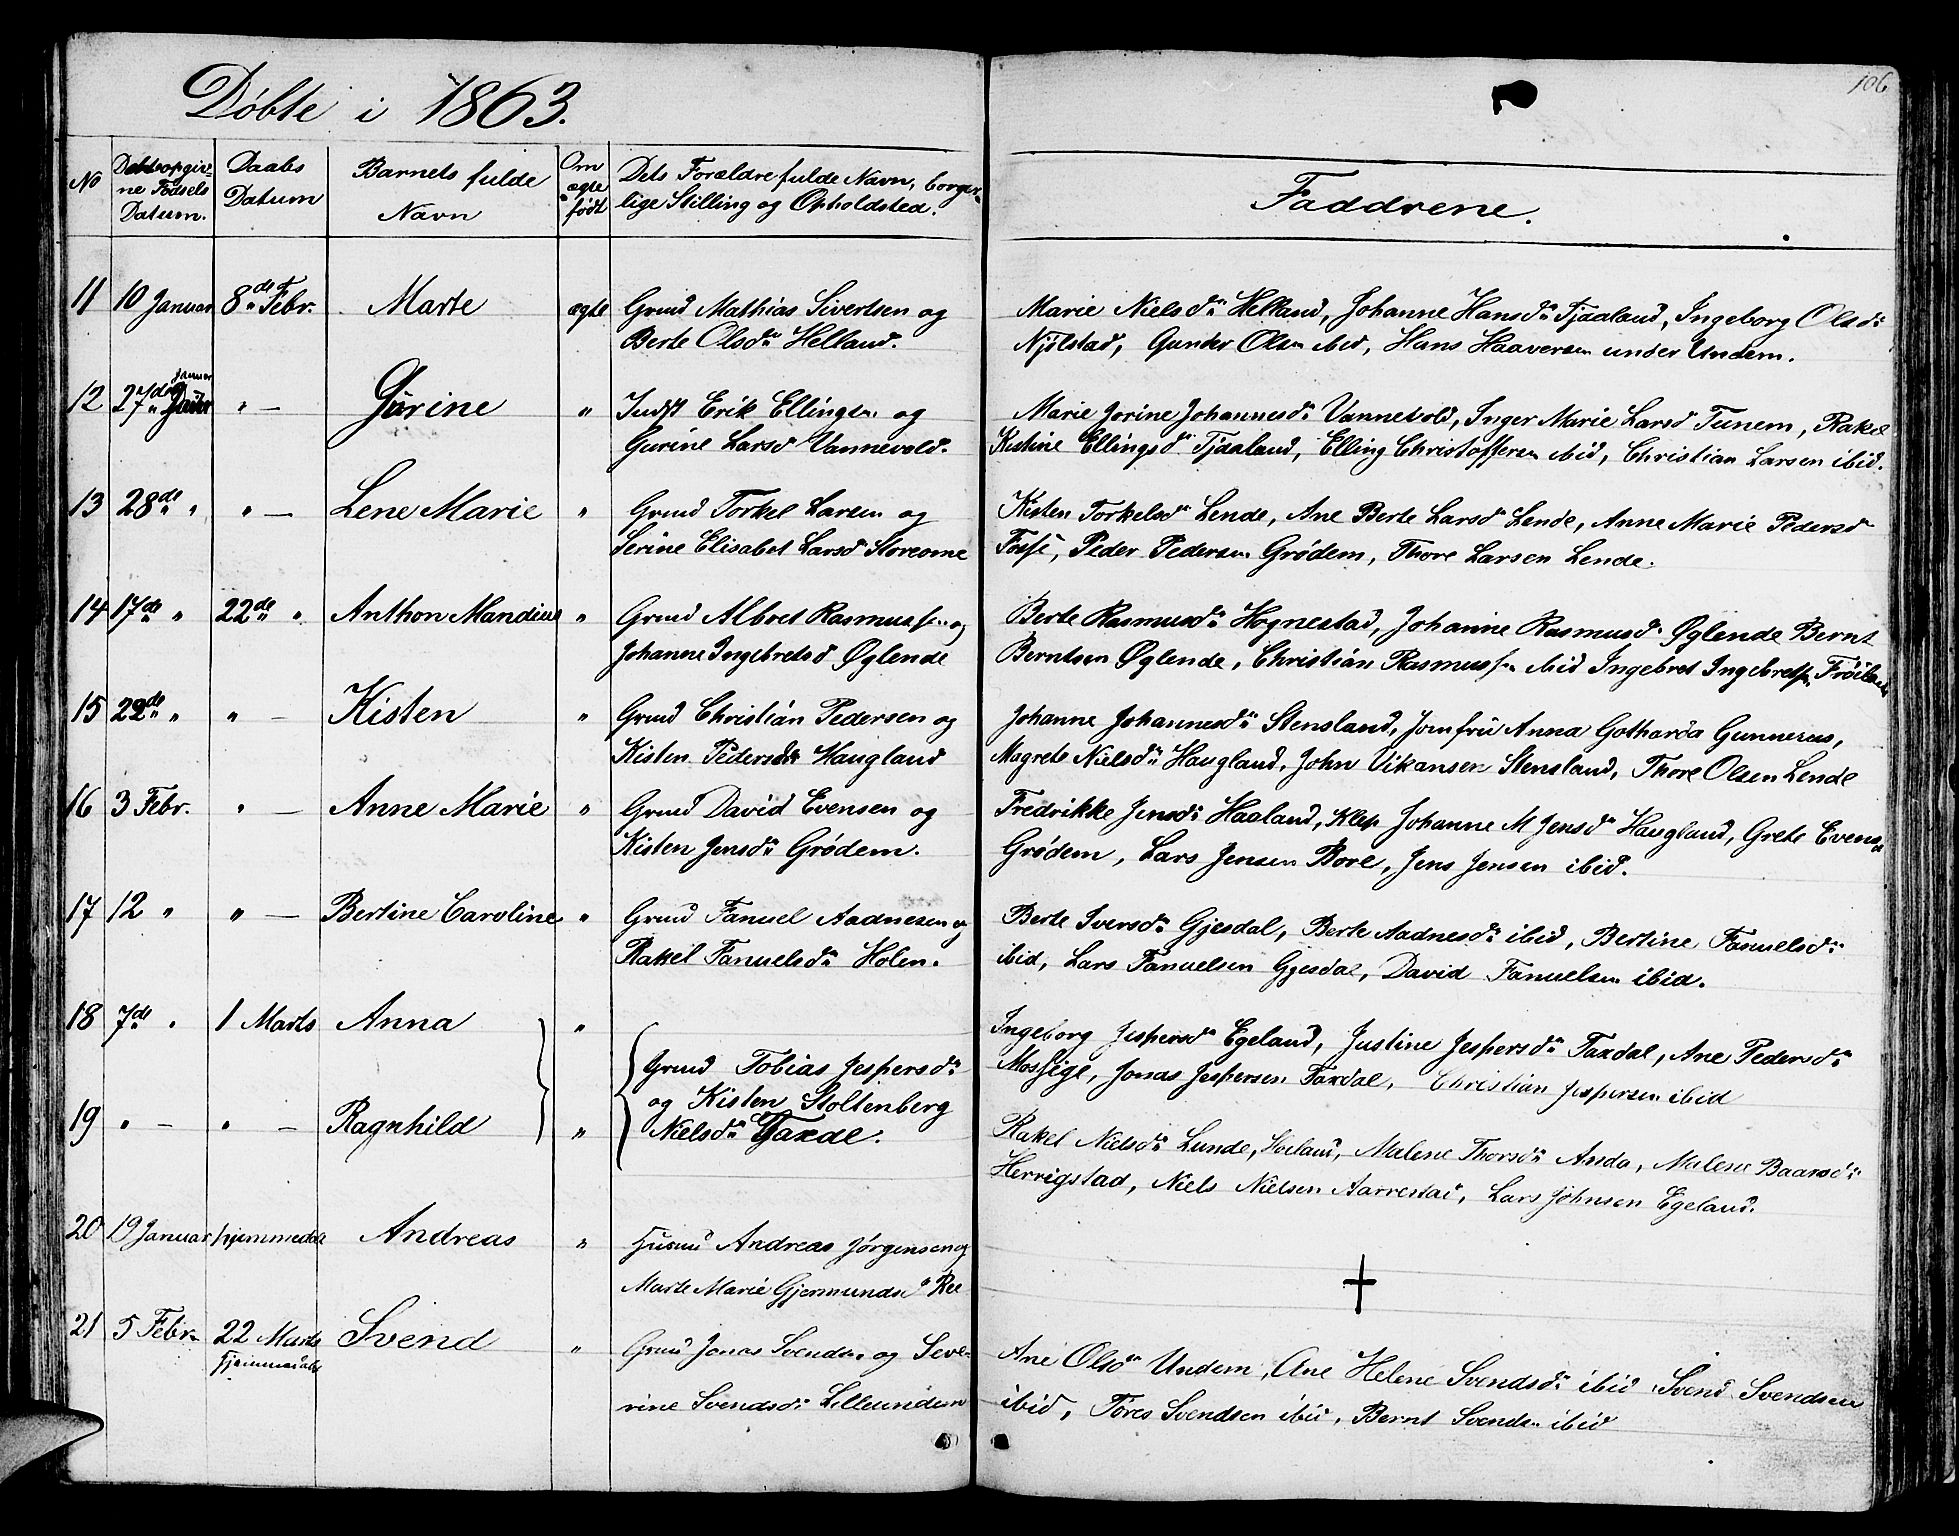 Døbte i 1863.
106
No
Det opgiv-
ne Fødsels
Datum.
Daabs
Datum
Barnets fulde
Navn
Om
ægte
født
Dets Forældre fulde Navn, borger-
lige Stilling og Opholdsted.
Faddrene.
11 10 Januar 8de Febr. Marte ægte Grmd Mathias Sivertsen og
Berte Olsd. Helland.
Marie Nielsd. Helland, Johanne Hansd. Tjaaland, Ingeborg Olsd.
Njilstad, Gunder Olsn ibid, Hans Haaversen under Undem.
12 27de Januar " — Gurine " Indst Erik Ellingsn og
Gurine Larsd Vannevold.
Marie Jorine Johannesd. Vannevold, Inger Marie Larsd Tunem, Rakel
Kistine Ellingsd. Tjaaland, Elling Christoffersn ibid, Christian Larsen ibid.
13 28de " " — Lene Marie " Grmd Torkel Larsen og
Serine Elisabet Larsd Storeome
Kisten Torkelsd. Lende, Ane Berte Larsd Lende, Anne Marie Pedersd
Fosse, Peder Pedersen Grødem, Thore Larsen Lende.
14 17de " 22de " Anthon Mandius " Grmd Albret Rasmussen og
Johanne Ingebretsd Øglende
Berte Rasmusd. Hognestad, Johanne Rasmusd. Øglende Bernt
Berntsen Øglende, Christian Rasmussn ibid Ingebret Ingebretsn Frøiland
15 22de " " — Kisten " Grmd Christian Pedersen og
Kisten Pedersd Haugland
Johanne Johannesd. Stensland, Jomfru Anna Gotharda Gunnerus,
Magrete Nielsd. Haugland, John Vikansen Stensland, Thore Olsen Lende
16 3 Febr. " — Anne Marie " Grmd David Evensen og
Kisten Jensd. Grødem.
Fredrikke Jensd. Haaland, Klep Johanne M Jensd. Haugland, Grete Evensd
Grødem, Lars Jensen Bore, Jens Jensen ibid.
17 12 " " — Bertine Caroline " Grmd Fanuel Aadnesen og
Rakel Fanuelsd. Holen.
Berte Iversd. Gjesdal, Berte Aadnesd. ibid, Bertine Fanuelsd.
ibid, Lars Fanuelsen Gjesdal, David Fanuelsen ibid.
18 7de " 1 Marts Anna "
Grmd Tobias Jespersd.
og Kisten Stoltenberg
Nielsd. Taxdal.
Ingeborg Jespersd. Egeland, Justine Jespersd. Taxdal, Ane Pedersd.
Mossige, Jonas Jespersen Taxdal, Christian Jespersen ibid
19 " — " — Ragnhild "
Rakel Nielsd. Lunde, Høiland, Malene Thorsd. Anda, Malene Baardsd.
Herrigstad, Niels Nielsen Aarrestad, Lars Johnsen Egeland.
20 19 Januar hjemmedøbt Andreas " Husmd Andreas Jørgensen og
Marte Marie Gjermundsd Ree
†
21 5 Febr. 22 Marts
hjemmedøbt
Svend " Grmd Jonas Svendsn og Seve-
rine Svendsd. Lilleundem
Ane Olsd. Undem, Ane Helene Svendsd. ibid Svend Svendsen
ibid, Tores Svendsen ibid, Bernt Svendsn ibid